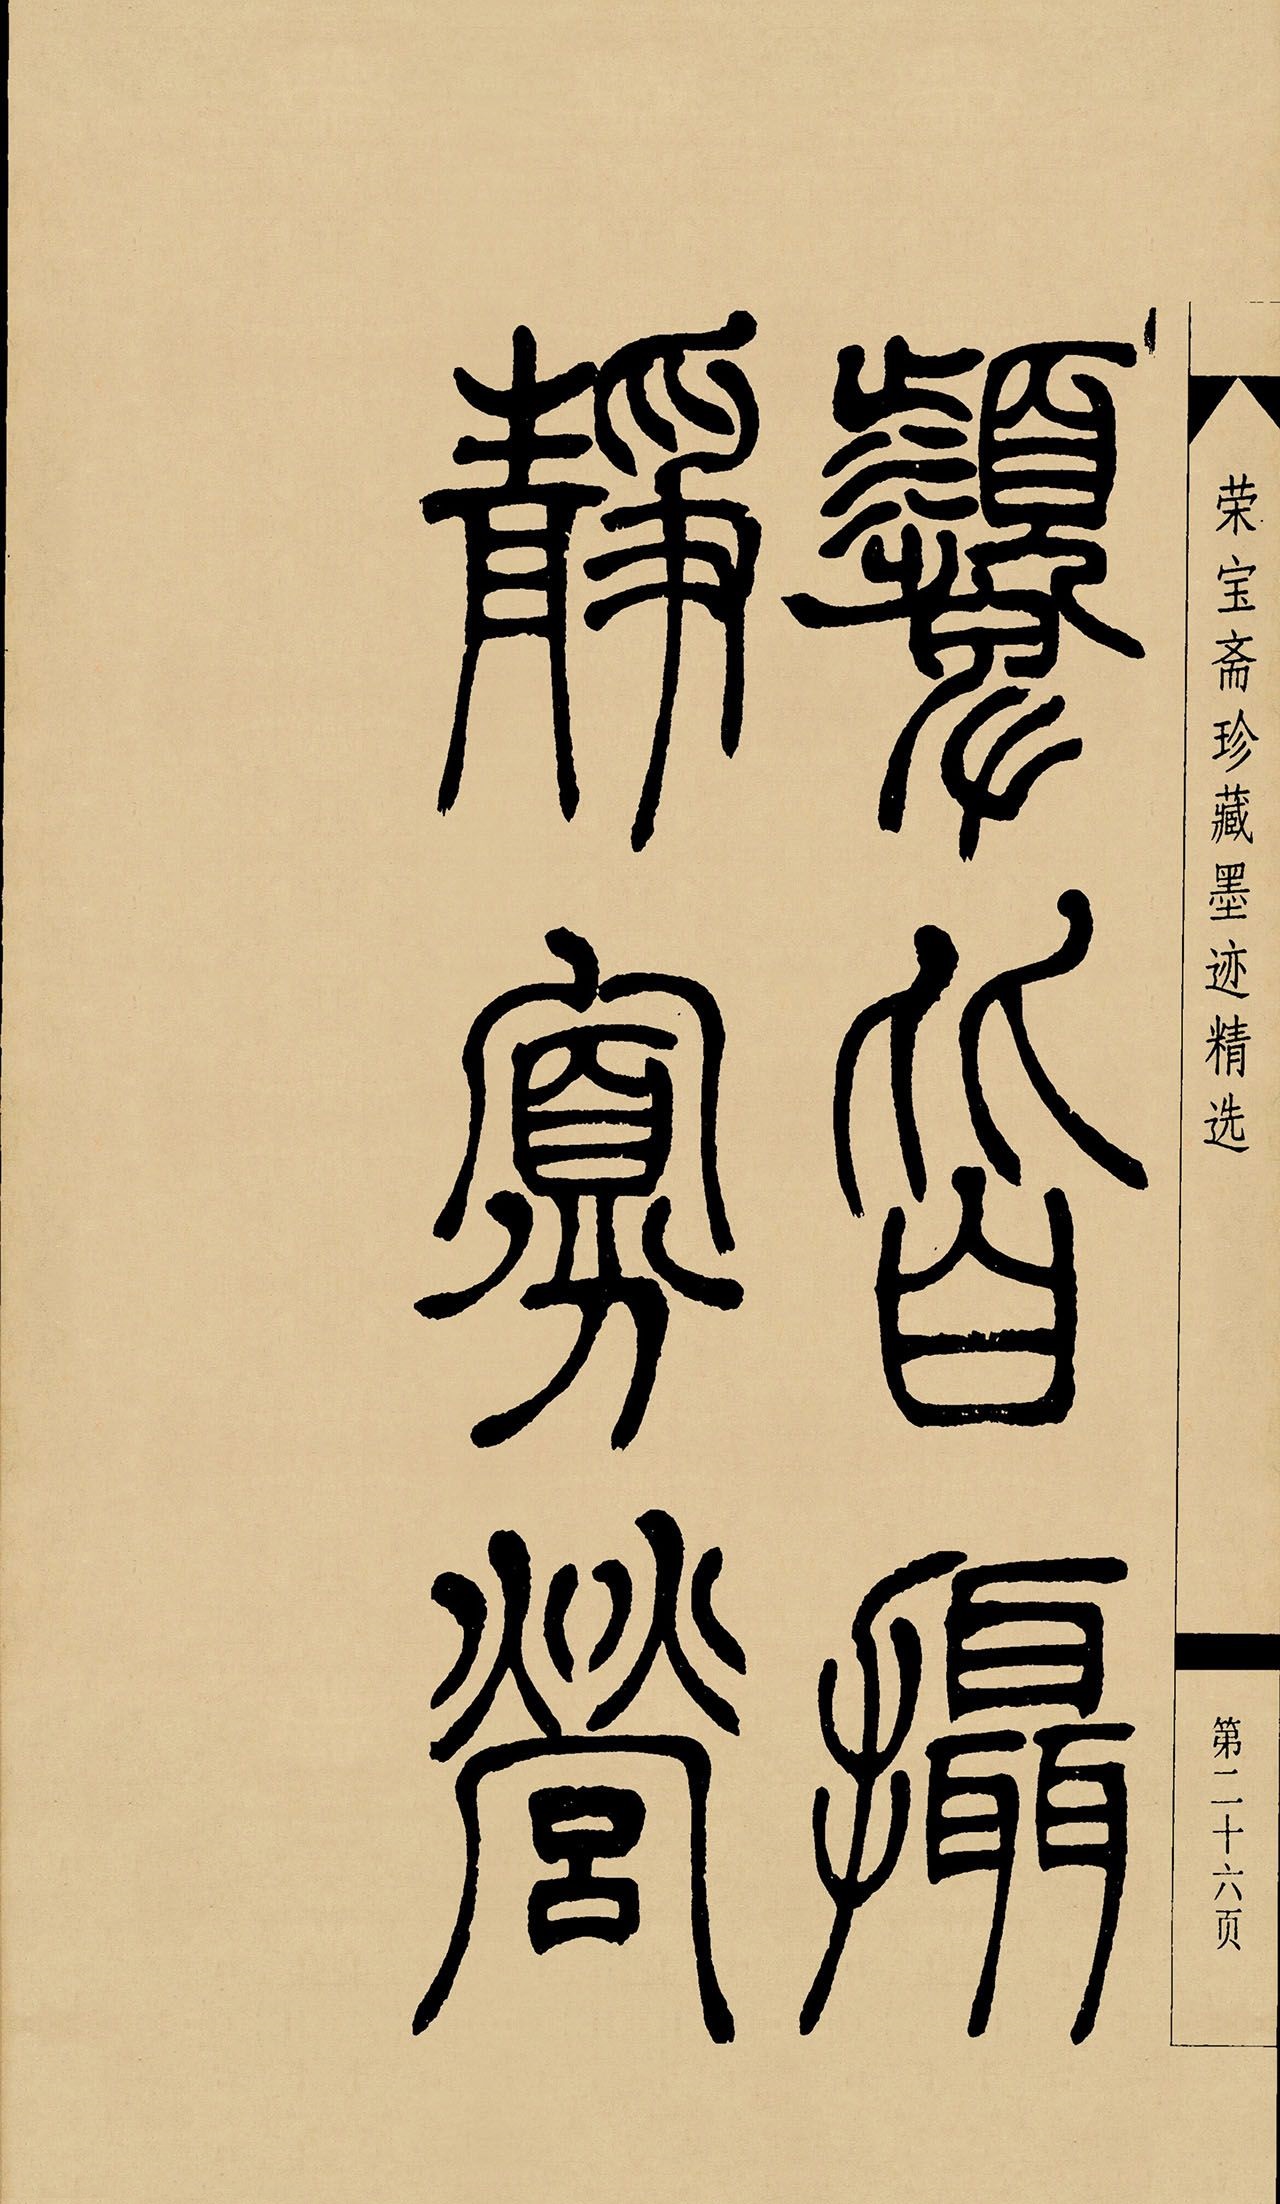 荣宝斋珍藏墨迹精选
第二十六页
顰皆攝
靜寡營